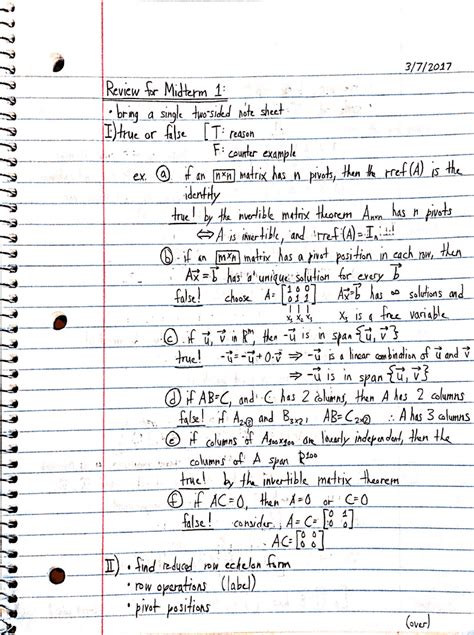 3/7/2017
Review for Midterm 1:
• bring a single two-sided note sheet
I) true or false [T: reason
F: counter example
ex. (a) if an n×n matrix has n pivots, then the rref(A) is the
identity
true! by the invertible matrix theorem Aₙₓₙ has n pivots
⟺ A is invertible, and rref(A)=Iₙ
(b) if an m×n matrix has a pivot position in each row, then
Ax⃗=b⃗ has a unique solution for every b⃗
false! choose A=[1 0 0; 0 1 1] Ax⃗=b⃗ has ∞ solutions and
x₁ x₂ x₃ x₃ is a free variable
(c) if u⃗, v⃗ in ℝᵐ, then -u⃗ is in span{u⃗, v⃗}
true! -u⃗=-u⃗+0·v⃗ ⇒ -u⃗ is a linear combination of u⃗ and v⃗
⇒ -u⃗ is in span{u⃗, v⃗}
(d) if AB=C, and C has 2 columns, then A has 2 columns
false! if A and B₃ₓ₂, AB=C ∴ A has 3 columns
(e) if columns of A₁₀₀ₓ₁₀₀ are linearly independent, then the
columns of A span ℝ¹⁰⁰
true! by the invertible matrix theorem
(f) if AC=0, then A=0 or C=0
false! consider A=C=[0 1; 0 0]
AC=[0 0; 0 0]
II) • find reduced row echelon form
• row operations (label)
• pivot positions
(over)